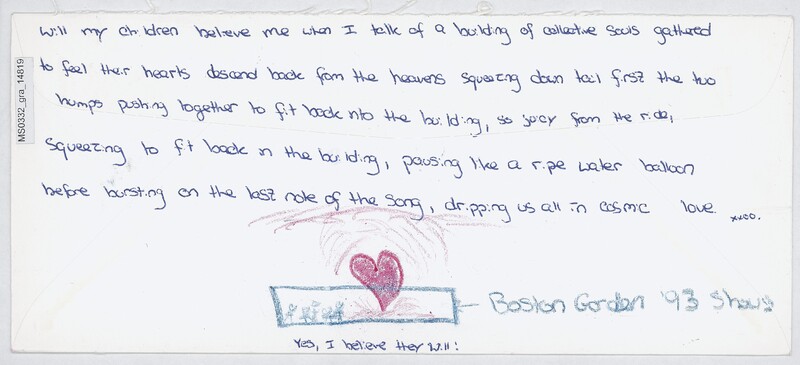 Will my children believe me when I talk of a building of collective souls gathered
to feel their hearts descend back from the heavens squeezing down tail first the two
humps pushing together to fit back into the building, so juicy from the ride,
squeezing to fit back in the building, pausing like a ripe water balloon
before bursting on the last note of the song, dripping us all in cosmic love. xxoo.
Boston Garden '93 Shows
Yes, I believe they will!
MS0332_gra_14819